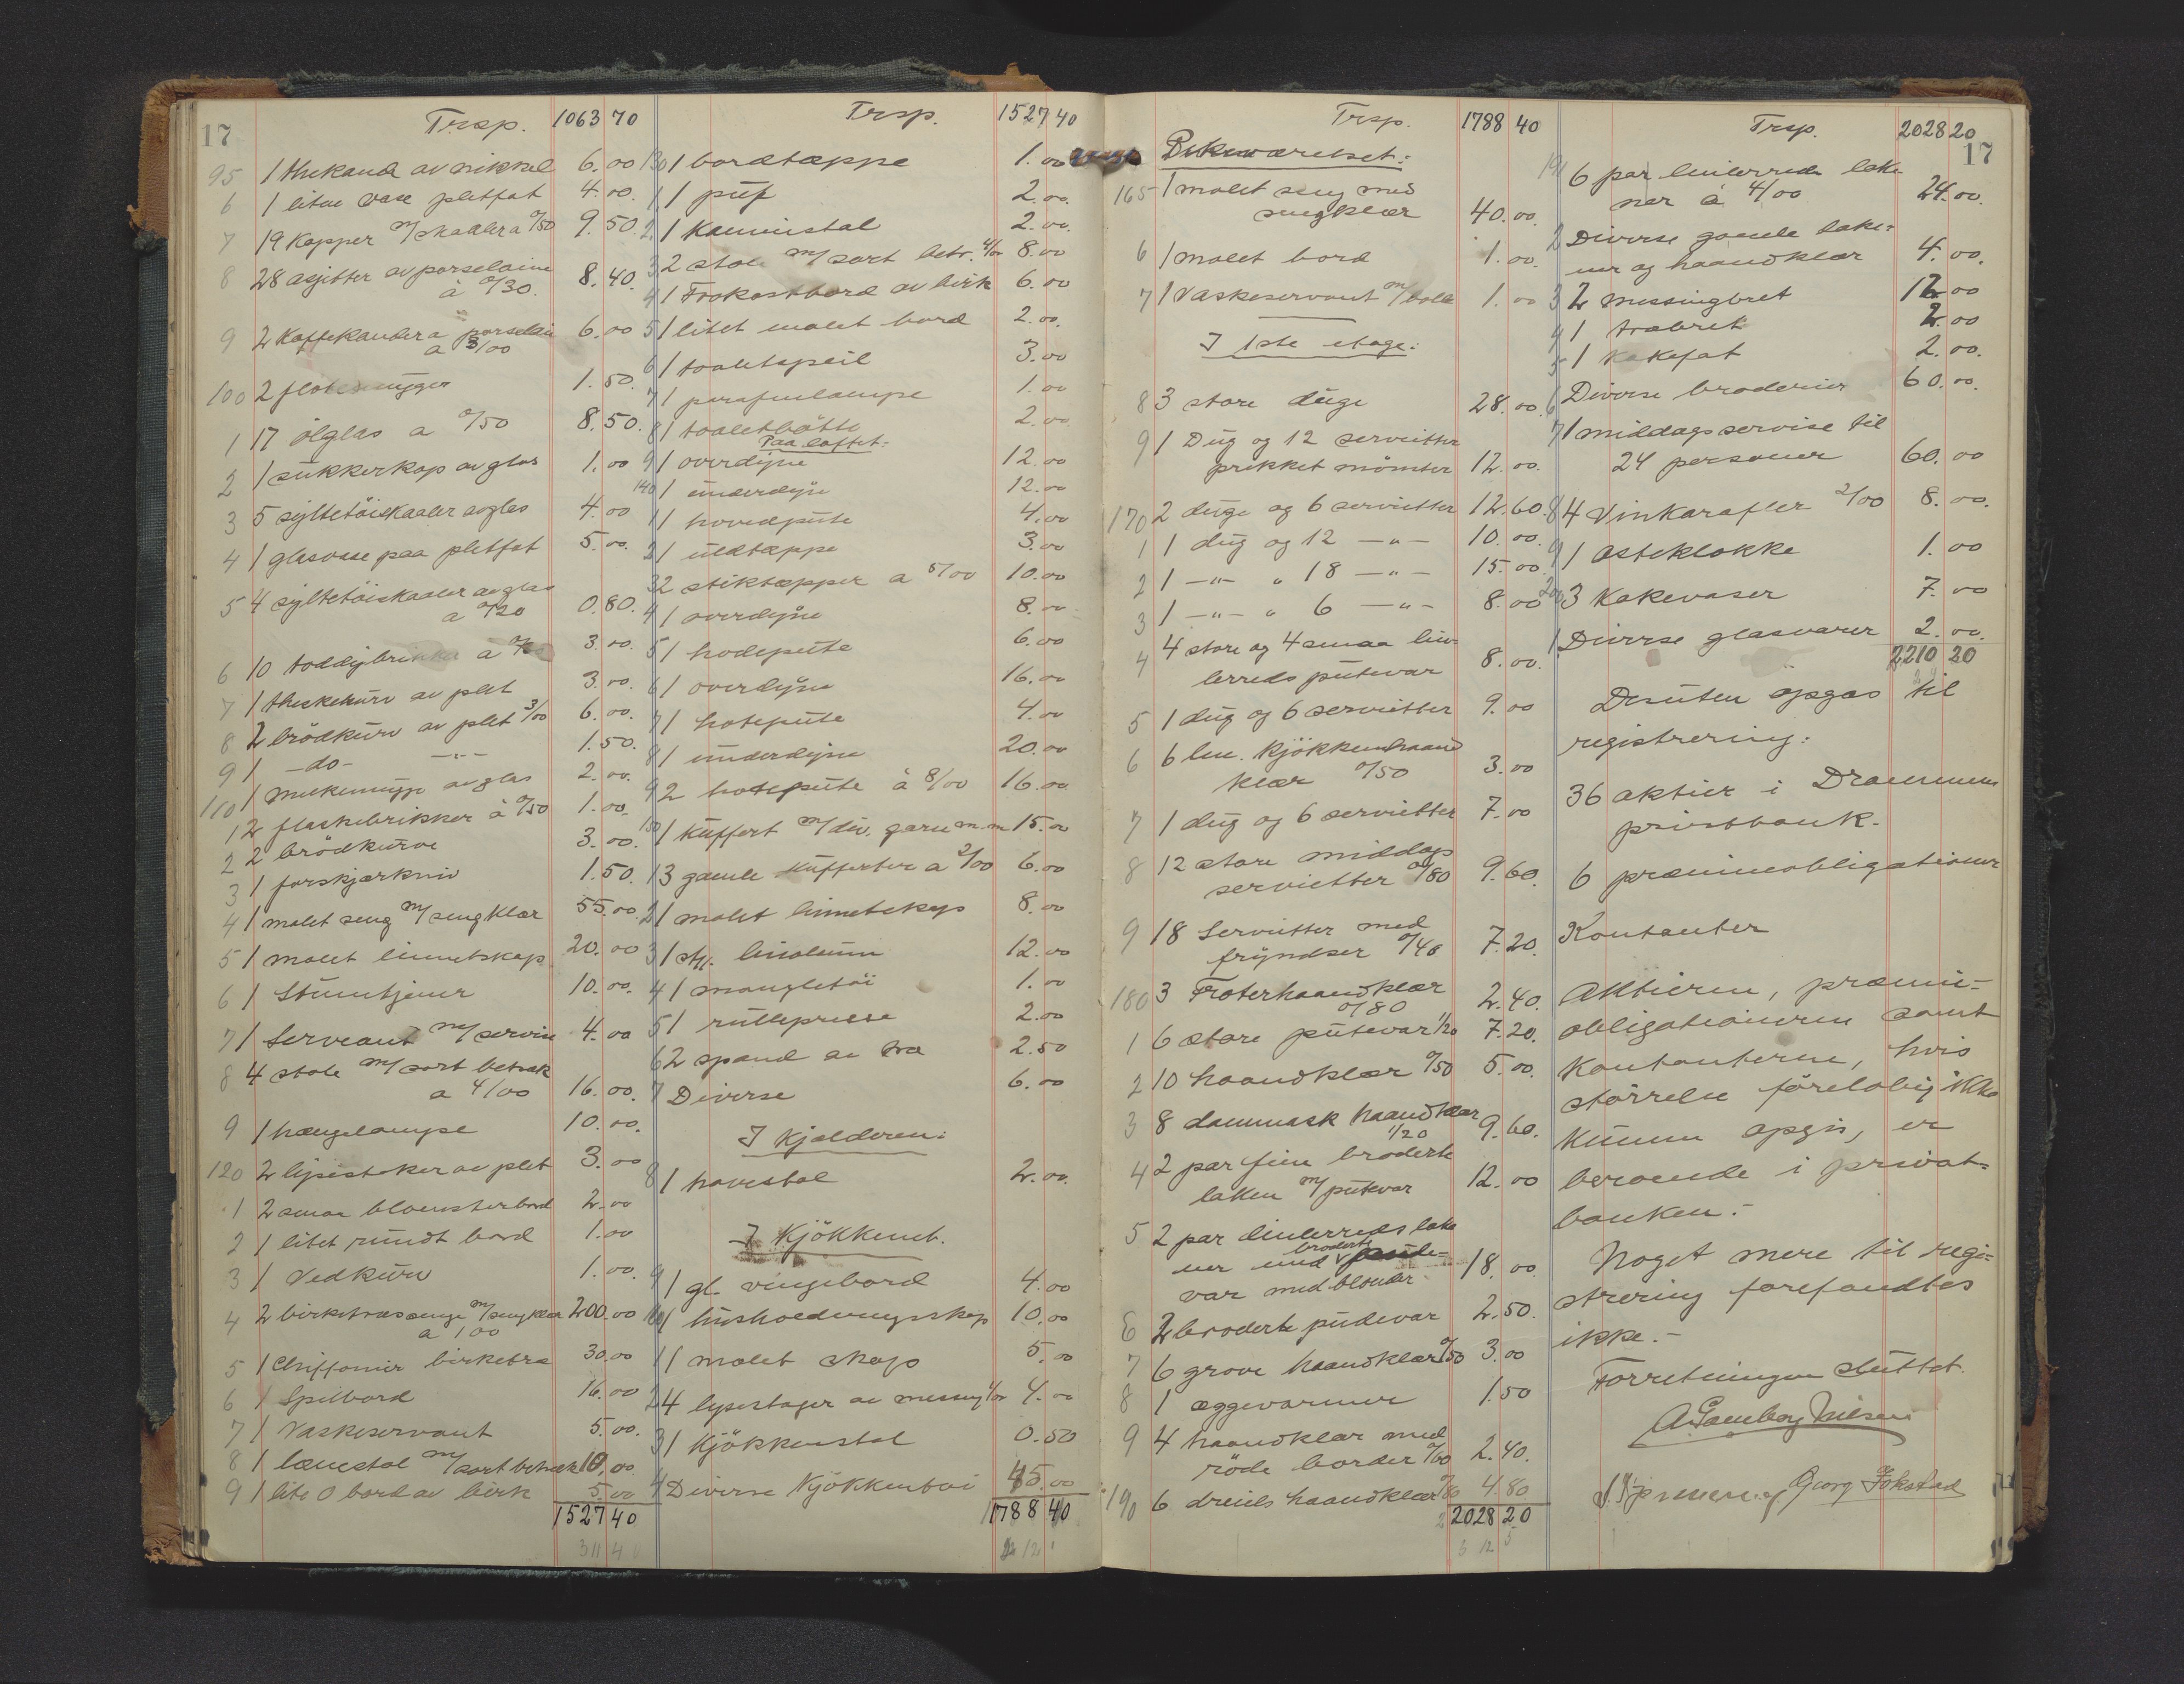 17
Trsp. 1063 70
95 1 thekande av nikkel 6.00
6 1 liten vase pletfat 4.00.
7 19 Kopper m/skaaler a 0/50 9.50.
8 28 asjetter av porselaine
à 0/30. 8.40.
9 2 Kaffekander a porselain
a 3/00 6.00
100 2 flotemugger 1.50.
1 17 ölglas a 0/50 8.50.
2 1 sükkerkop av glas 1.00
3 5 syltetöiskaaler avglas 4.00
4 1 glasvase paa pletfat 5.00.
5 4 syltetöiskaaler av glas
a 0/20 0.80.
6 10 toddybrikker à 3.00.
7 1 theskekurv av plet 3.00.
8 2 brödkürv av plet 3/00 6.00.
9 1 -do- -"- 1.50.
110 1 mukkemugge avglas 2.00.
1 2 flaskebrikker à 0/50 1.00.
2 2 brödkurve 3.00.
3 1 forskjærkniv 1.50.
4 1 malet seng m/sengklær 55.00.
5 1 malet linnetskap 20.00
6 1 Stumtjener 10.00.
7 1 Servant m/servise 4.00
8 4 stole m/sort betræk
a 4/00 16.00.
9 1 hængelampe 10.00.
120 2 lysestaker av plet 3.00
1 2 smaa blomsterbord 2.00
2 1 litet rundt bord 1.00
3 1 Vedkurv 1.00.
4 2 birketræs senge m/sengklær 200.00
a 100
5 1 Chiffonier birketræ 30.00
6 1 Spilbord 16.00
7 1 Vaskeservant 5.00.
8 1 lænestol m/sort betræk 10.00
9 1 lite O bord av birk 5.00
1527 40
Trsp. 1527 40
130 1 bordtæppe 1.00
1 1 püf 2.00.
2 1 Kaminstol 2.00.
3 2 stole m/sort betr. 4/00 8.00
4 1 Frokostbord av birk 6.00
5 1 litet malet bord 2.00.
6 1 toaletspeil 3.00
7 1 parafinlampe 1.00
8 1 toaletbötte 2.00
Paa loftet:
9 1 overdyne 12.00
140 1 underdyne 12.00
1 1 hovedpute 4.00
2 1 uldtæppe 3.00
3 2 stiktæpper a 5/00 10.00
4 1 overdyne 8.00
5 1 hodepute 6.00
6 1 overdyne 16.00
7 1 hodepute 4.00
8 1 underdyne 20.00
9 2 hodepute à 8/00 16.00
150 1 Küffert m/div. garn m.m 15.00
1 3 gamle Küfferter a 2/00 6.00
2 1 malet linnetskap 8.00
3 1 stk. linoleum 12.00
4 1 mangletöi 1.00
5 1 rullepresse 2.00
6 2 spand av træ 2.50
7 Diverse 6.00
I Kjælderen:
8 1 havestol 2.00.
I Kjökkenet.
9 1 gl. vingebord 4.00
160 1 husholdningsskap 10.00
1 1 malet skap 5.00
2 4 lysestager av messing 1/00 4.00
3 1 Kjökkenstol 0.50
4 Diverse Kjökkentöi 45.00
1788 40
Trsp. 1788 40
Pikeværelset:
165 1 malet seng med
sengklær 40.00.
6 1 malet bord 1.00.
7 1 Vaskeservant m/bolle 1.00
I 1ste etage:
8 3 store duge 28.00.
9 1 Dug og 12 servietter
prikket mönster 12.00.
170 2 duge og 6 servietter 12.60.
1 1 dug og 12 -"- 10.00.
2 1 -"- " 18 -"- 15.00.
3 1 -"- " 6 -"- 8.00
4 4 store og 4 smaa lin-
lerreds putevar 8.00.
5 1 dug og 6 servietter 9.00
6 6 lin. Kjökkenhaand
klær 0/50 3.00
7 1 dug og 6 servietter 7.00
8 12 store middags
servietter 0/80 9.60.
9 18 Servietter med
fryndser 0/40 7.20.
180 3 Froterhaandklær
0/80 2.40.
1 6 store putevar 1/20 7.20.
2 10 haandklær 0/50 5.00.
3 8 dammask haandklær
1/20 9.60.
4 2 par fine broderte
laken m/putevar 12.00
5 2 par linlerreds lake
ner med broderte pude-
var med blonder 18.00
6 2 broderte pudevar 2.50.
7 6 grove haandklær 0/50 3.00
8 1 æggevarmer 1.50
9 4 haandklær med
röde border 0/60 2.40.
190 6 dreiels haandklær 0/80 4.80
2028 20
Trsp. 2028 20
17
191 6 par linlerreds lake
ner à 4/00 24.00.
2 Diverse gamle lake-
ner og haandklær 4.00.
3 2 messingbret 12.00
4 1 træbret 2.00
5 1 Kakefat 2.00.
6 Diverse broderier 60.00.
7 1 middagsservise til
24 personer 60.00
8 4 Vinkarafler 2/00 8.00.
9 1 Osteklokke 1.00
200 3 Kakevaser 7.00
1 Diverse glasvarer 2.00.
2210 20
Desuten opgas til
registrering:
36 aktier i Drammens
privatbank.
6 præmieobligationer
Kontanter
Aktierne, præmie-
obligationerne samt
Kontanterne, hvis
störrelse föreløbig ikke
Kunne opgis, er
beroende i privat-
banken.-
Noget mere til regi-
strering forefandtes
ikke.-
Forretningen sluttet.
Nilsen
Georg Fokstad